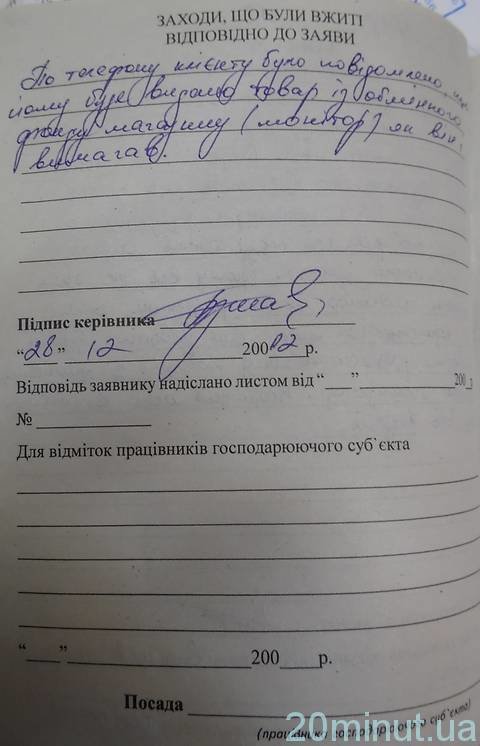 ЗАХОДИ, ЩО БУЛИ ВЖИТІ
ВІДПОВІДНО ДО ЗАЯВИ
По телефону клієнту було повідомлено, що
йому буде видано товар із обмінного
фонду магазину (монітор) як він
вимагав.
Підпис керівника
“28” 12 200 12 р.
Відповідь заявнику надіслано листом від “___” 200_
№
Для відміток працівників господарюючого суб`єкта
“___” 200___р.
Посада
(працівника господарюючого суб`єкта)
20minut.ua